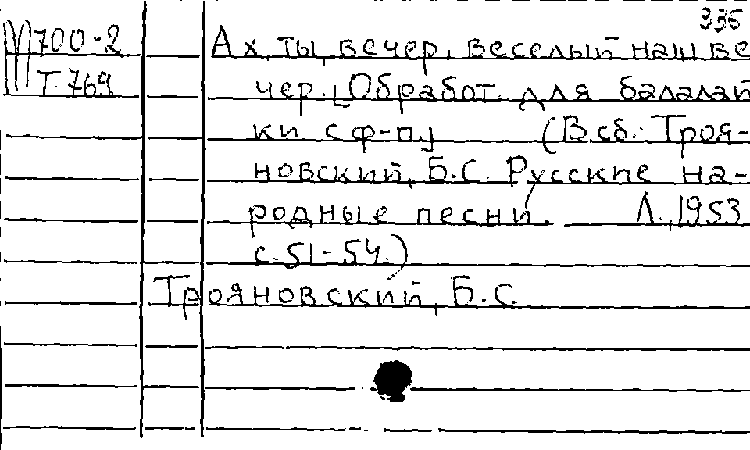 336
М700-2 Ах, ты, вечер, веселый наш ве
Т 769 чер. [Обработ. для балалай
ки с ф-п.] (В сб.: Троя-
новский, Б.С. Русские на-
родные песни. Л., 1953
с. 51-54.)
Трояновский, Б.С.